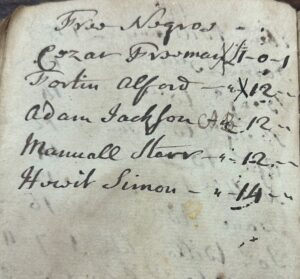 Free Negros
Cezar Freeman X 1-0-1
Fortin Alford - " X 12 -
Adam Jackson 12 -
Manuall Sterr - " 12 - "
Howit Simon - " 14 - "